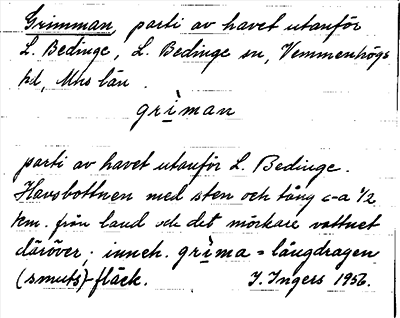 Grimman, parti av havet utanför
L. Bedinge, L. Bedinge sn, Vemmenhögs
hd, Mhs län.
grìman
parti av havet utanför L. Bedinge.
Havsbottnen med sten och tång c-a 1/2
km. från land och det mörkare vattnet
däröver; inneh. grìma = långdragen
(smuts)-fläck. I. Ingers 1956.